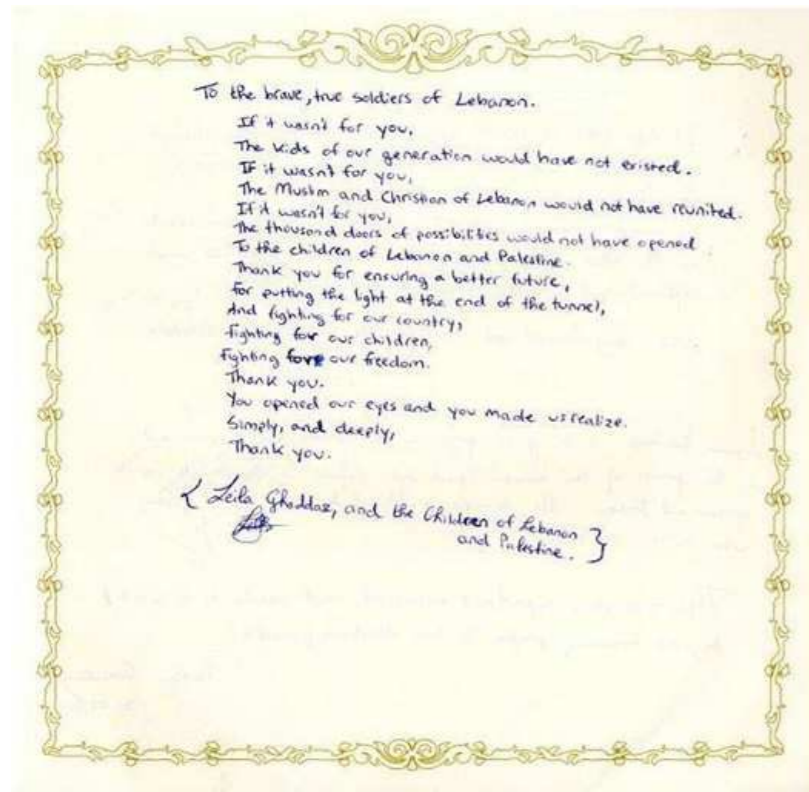 To the brave, true soldiers of Lebanon.
If it wasn't for you,
The kids of our generation would have not existed.
If it wasn't for you,
The Muslim and Christian of Lebanon would not have reunited.
If it wasn't for you,
The thousand doors of possibilities would not have opened
To the children of Lebanon and Palestine.
Thank you for ensuring a better future,
for putting the light at the end of the tunnel,
And fighting for our country,
fighting for our children,
fighting for our freedom.
Thank you.
You opened our eyes and you made us realize.
Simply, and deeply,
Thank you.
{ Leila Ghaddar, and the Children of Lebanon
and Palestine. }